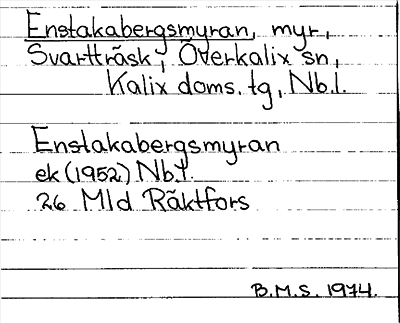 Enstakabergsmyran, myr,
Svartträsk, Överkalix sn,
Kalix doms. tg, Nb.l.
Enstakabergsmyran
ek (1952) Nb.l.
26 Mld Räktfors
B.M.S. 1974.